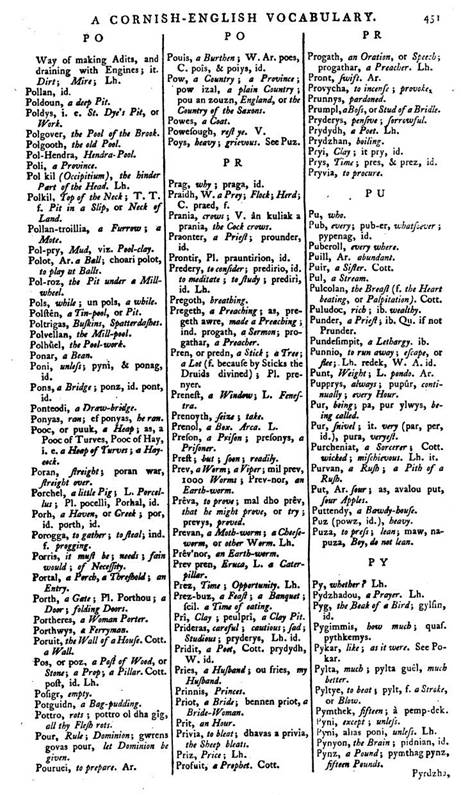 A CORNISH-ENGLISH VOCABULARY. 451
PO
Way of making Adits, and
draining with Engines; it.
Dirt; Mire; Lh.
Pollan, id.
Poldoun, a deep Pit.
Poldys, i. e. St. Dye's Pit, or
Work.
Polgover, the Pool of the Brook.
Polgooth, the old Pool.
Pol-Hendra, Hendra-Pool.
Poli, a Province.
Pol kil (Occipitium), the hinder
Part of the Head. Lh.
Polkil, Top of the Neck; T. T.
f. Pit in a Slip, or Neck of
Land.
Pollan-troillia, a Furrow; a
Mote.
Pol-pry, Mud, viz. Pool-clay.
Polot, Ar. a Ball; choari polot,
to play at Balls.
Pol-roz, the Pit under a Mill-
wheel.
Pols, while; un pols, a while.
Polstên, a Tin-pool, or Pit.
Poltrigas, Buskins, Spatterdashes.
Polvellan, the Mill-pool.
Polhûel, the Pool-work.
Ponar, a Bean.
Poni, unless; pyni, & ponag,
id.
Pons, a Bridge; ponz, id. pont,
id.
Ponteodi, a Draw-bridge.
Ponyas, ran; ef ponyas, he ran.
Pooc, or puuk, a Heap; as, a
Pooc of Turves, Pooc of Hay,
i. e. a Heap of Turves; a Hay-
cock.
Poran, streight; poran war,
streight over.
Porchel, a little Pig; L. Porcel-
lus; Pl. pocelli, Porhal, id.
Porh, a Haven, or Creek; por,
id. porth, id.
Porogga, to gather; to steal; ind.
f. progging.
Porris, it must be; needs; fain
would; of Necessity.
Portal, a Porch, a Threshold; an
Entry.
Porth, a Gate; Pl. Porthou; a
Door; folding Doors.
Portheres, a Woman Porter.
Porthwys, a Ferryman.
Poruit, the Wall of a House. Cott.
a Wall.
Pos, or poz, a Post of Wood, or
Stone; a Prop; a Pillar. Cott.
post, id. Lh.
Posigr, empty.
Potguidn, a Bag-pudding.
Pottro, rots; pottro ol dha gîg,
all thy Flesh rots.
Pour, Rule; Dominion; gwrens
govas pour, let Dominion be
given.
Pouruci, to prepare. Ar.
PO
Pouis, a Burthen; W. Ar. poes,
C. pois, & poiys, id.
Pow, a Country; a Province;
pow izal, a plain Country;
pou an zouzn, England, or the
Country of the Saxons.
Powes, a Coat.
Powesough, rest ye. V.
Poys, heavy; grievous. See Puz.
PR
Prag, why; praga, id.
Praidh, W. a Prey; Flock; Herd;
C. praed, f.
Prania, crows; V. ân kuliak a
prania, the Cock crows.
Praonter, a Priest; prounder,
id.
Prontir, Pl. prauntirion, id.
Predery, to consider; predirio, id.
to meditate; to study; prediri,
id. Lh.
Pregoth, breathing.
Pregeth, a Preaching; as, pre-
geth awre, made a Preaching;
ind. progath, a Sermon; pro-
gathar, a Preacher.
Pren, or predn, a Stick; a Tree;
a Lot (f. because by Sticks the
Druids divined); Pl. pre-
nyer.
Prenest, a Window; L. Fenes-
tra.
Prenoyth, seize; take.
Prenol, a Box. Arca. L.
Preson, a Prison; presonys, a
Prisoner.
Prest; but; soon; readily.
Prev, a Worm; a Viper; mil prev,
1000 Worms; Prev-nor, an
Earth-worm.
Prêva, to prove; mal dho prêv,
that he might prove, or try;
prevys, proved.
Prevan, a Moth-worm; a Cheese-
worm, or other Worm. Lh.
Prêv'nor, an Earth-worm.
Prev pren, Eruca, L. a Cater-
pillar.
Prez, Time; Opportunity. Lh.
Prez-buz, a Feast; a Banquet;
scil. a Time of eating.
Pri, Clay; peulpri, a Clay Pit.
Prideras, careful; cautious; sad;
Studious; pryderys, Lh. id.
Pridit, a Poet, Cott. prydydh,
W. id.
Pries, a Husband; ou fries, my
Husband.
Prinnis, Princes.
Priot, a Bride; bennen priot, a
Bride-Woman.
Prit, an Hour.
Privia, to bleat; dhavas a privia,
the Sheep bleats.
Priz, Price; Lh.
Profuit, a Prophet. Cott.
PR
Progath, an Oration, or Speech;
progathar, a Preacher. Lh.
Pront, swift. Ar.
Provycha, to incense; provoke.
Prunnys, pardoned.
Prumpl, a Boss, or Stud of a Bridle.
Pryderys, pensive; sorrowful.
Prydydh, a Poet. Lh.
Prydzhan, boiling.
Pryi, Clay; it pry, id.
Prys, Time; pres, & prez, id.
Pryvia, to procure.
PU
Pu, who.
Pub, every; pub-er, whatsoever;
pypenag, id.
Puberoll, every where.
Puill, Ar. abundant.
Puir, a Sister. Cott.
Pul, a Stream.
Pulcolan, the Breast (f. the Heart
beating, or Palpitation). Cott.
Puludoc, rich; ib. wealthy.
Punder, a Priest; ib. Qu. if not
Prunder.
Pundesimpit, a Lethargy. ib.
Punnio, to run away; escape, or
flee; Lh. redek, W. A. id.
Punt, Weight; L. pondo. Ar.
Pupprys, always; pupûr, conti-
nually; every Hour.
Pur, being; pa, pur ylwys, be-
ing called.
Pur, snivel; it. very (par, per,
id.), pura, veryest.
Purcheniat, a Sorcerer; Cott.
wicked; mischievous. Lh. it.
Purvan, a Rush; a Pith of a
Rush.
Put, Ar. sour; as, avalou put,
sour Apples.
Puttendy, a Bawdy-house.
Puz (powz, id.), heavy.
Puza, to press; lean; maw, na-
puza, Boy, do not lean.
PY
Py, whether? Lh.
Pydzhadou, a Prayer. Lh.
Pyg, the Beak of a Bird; gylsin,
id.
Pygimmis, how much; quaf.
pythkemys.
Pykar, like; as it were. See Po-
kar.
Pylta, much; pylta guêl, much
better.
Pyltye, to beat; pylt, f. a Stroke,
or Blow.
Pymthek, fifteen; à pemp-dek.
Pyni, except; unless.
Pyni, alias poni, unless. Lh.
Pynyon, the Brain; pidnian, id.
Pynz, a Pound; pymthag pynz,
fifteen Pounds.
Pyrdzha,